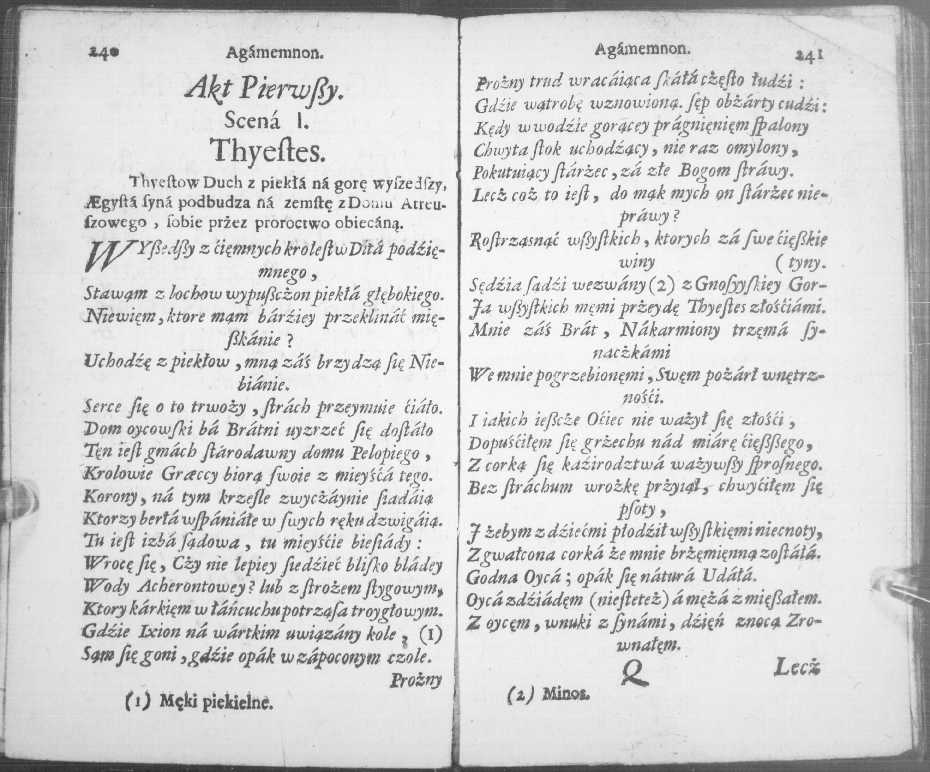 240
Agámemnon.
Akt Pierwſßy.
Scená I.
Thyeſtes.
Thyeſtow Duch z piekłá ná gorę wyſzedſzy,
Ægyſtá ſyná podbudza ná zemſtę z Domu Atreu-
ſzowego, ſobie przez proroctwo obiecáną.
WYßedßy z ćięmnych kroleſtw Ditá podźię-
mnego,
Stawąm z lochow wypußcżon piekłá głębokiego.
Niewięm, ktore mąm bárźiey przeklináć mię-
ſßkánie?
Uchodźę z piekłow, mną záś brzydzą ſię Nie-
biánie.
Serce ſię o to trwoży, ſtrách przeymuie ćiáło.
Dom oycowſki bá Brátni uyzrzeć ſię doſtáło
Tęn ieſt gmách ſtárodawny domu Pelopiego,
Krolowie Græccy biorą ſwoie z mieyśćá tego.
Korony, ná tym krzeſle zwyczáynie ſiadáią
Ktorzy berłá wſpániáłe w ſwych ręku dzwigáią.
Tu ieſt izbá ſądowa, tu mieyśćie bieſiády:
Wrocę ſię, Cży nie lepiey ſiedźieć bliſko bládey
Wody Acherontowey? lub z ſtrożem ſtygowym,
Ktory kárkięm w łáńcuchu potrząſa troygłowym.
Gdźie Ixion ná wártkim uwiązány kole, (1)
Sąm ſię goni, gdźie opák w zápoconym czole.
Prożny
(1) Męki piekielne.
Agámemnon.
241
Prożny trud wracáiąca ſkáłá cżęſto łudźi:
Gdźie wątrobę wznowioną. ſęp obżárty cudźi:
Kędy w wodźie gorącey prágnięnięm ſpalony
Chwyta ſtok uchodźący, nie raz omylony,
Pokutuiący ſtárżec, zá złe Bogom ſtráwy.
Lecż coż to ieſt, do mąk mych on ſtárżec nie-
práwy?
Roſtrząsnąć wſßyſtkich, ktorych zá ſwe ćięßkie
winy (tyny.
Sędźia ſądźi wezwány (2) z Gnoſyyſkiey Gor-
Ja wſßyſtkich męmi przeydę Thyeſtes złośćiámi.
Mnie záś Brát, Nákarmiony trzęmá ſy-
nacżkámi
We mnie pogrzebionęmi, Swęm pożárł wnętrz-
nośći.
I iakich ieſzcże Oćiec nie ważył ſię złośći,
Dopuśćiłęm ſię grzechu nád miárę ćięſßſego,
Z corką ſię kaźirodztwá ważywſßy ſproſnego.
Bez ſtráchum wrożkę przyiął, chwyćiłęm ſię
pſoty,
J żebym z dźiećmi płodźił wſßyſtkięmi niecnoty,
Zgwałcona corká że mnie brzęmięnną zoſtáłá.
Godna Oycá; opák ſię náturá Udáłá.
Oycá z dźiádęm (nieſteteż) á mężá z mięßałem.
Z oycęm, wnuki z ſynámi, dźięń znocą Zro-
wnałęm.
Q
Lecż
(2) Minos.